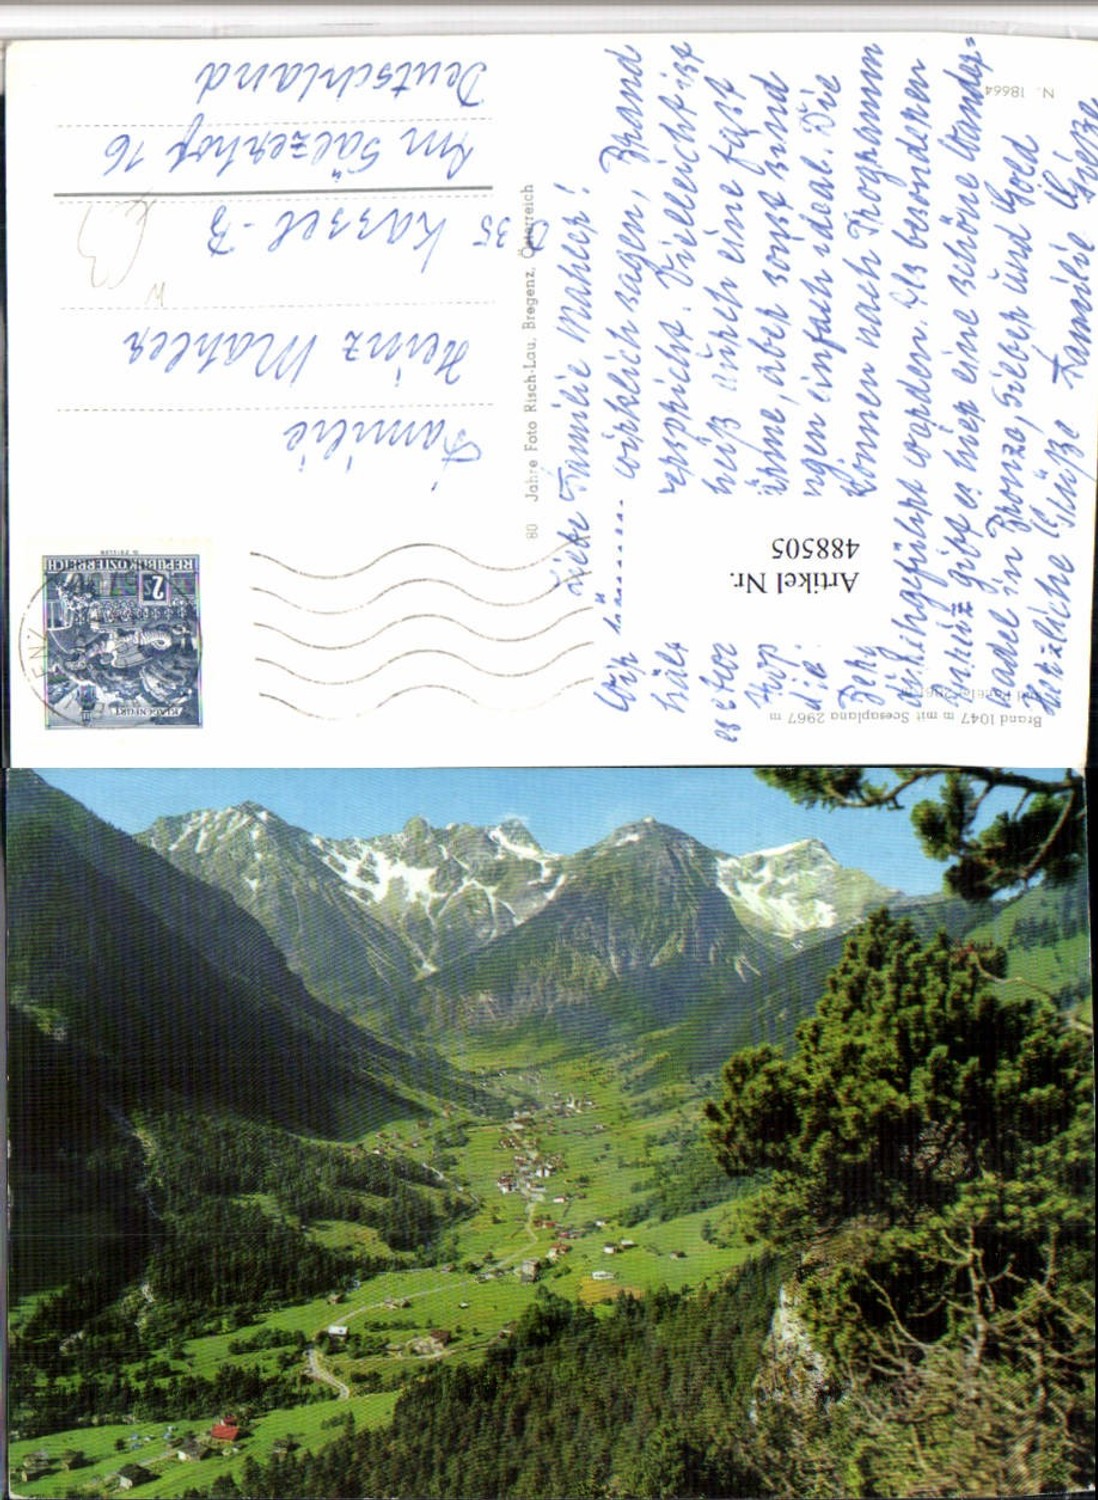 Brand 1047 m mit Scesaplana 2967 m
N. 18664
Liebe Familie Mahler!
Wir können wirklich sagen, Brand
hält
verspricht. Vielleicht ist
es etwas heiß durch eine fast
aber sonst sind
die
ngen einfach ideal. Die
können nach Programm
durchgeführt werden. Als besonderen
Anreiz gibt es hier eine schöne Wander=
nadel in Bronze, Silber und Gold
Herzliche Grüße Familie Götze
Artikel Nr.
488505
80 Jahre Foto Risch-Lau, Bregenz, Österreich
REPUBLIK ÖSTERREICH
2 S
KLAGENFURT
Familie
Heinz Mahler
D 35 Kassel-B
Am Sälzerhof 16
Deutschland